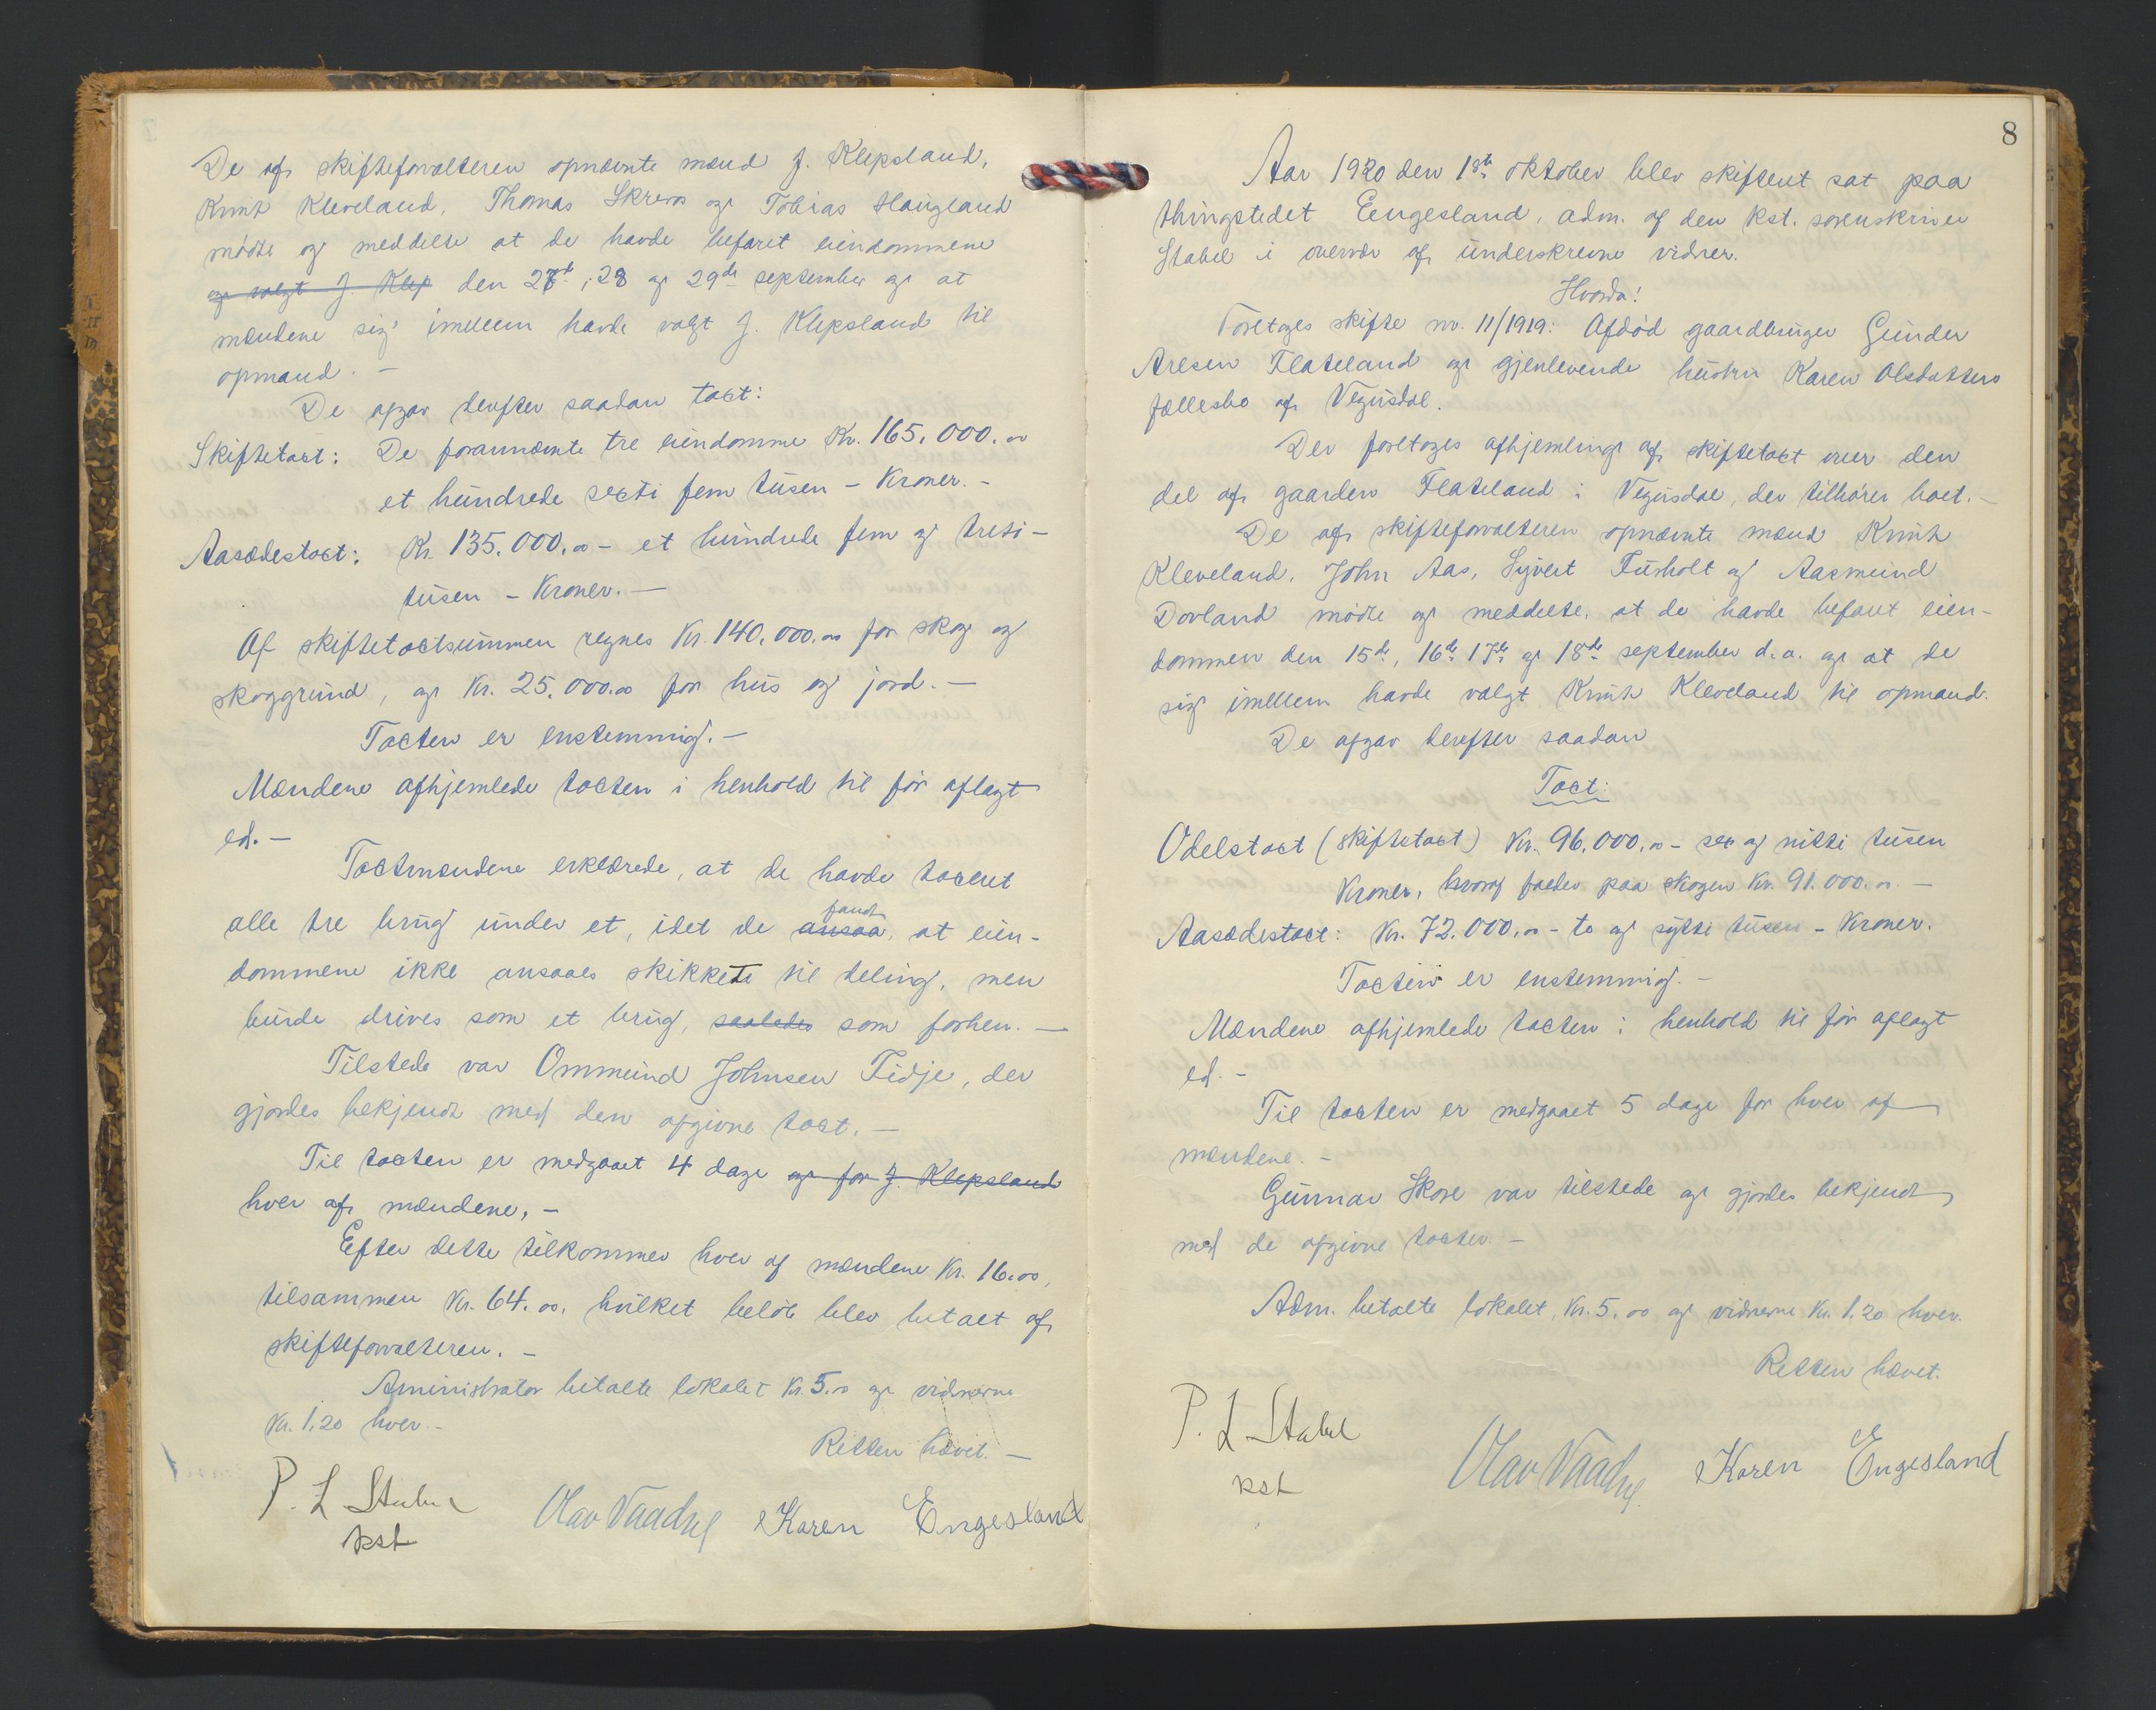 De af skifteforvalteren opnævnte mænd J. Klepsland,
Knut Kleveland, Thomas Skreros og Tobias Haugland
mødte og meddelte at de havde befaret eiendommene
og valgt J. Klep den 27de, 28 og 29de september og at
mændene sig imellem havde valgt J. Klepsland til
opmand. –
De afgav derefter saadan taxt:
Skiftetaxt: De forannævnte tre eiendomme Kr. 165.000.00
et hundrede sexti fem tusen – Kroner. –
Aasædestaxt: Kr. 135.000.00 – et hundrede fem og treti –
tusen – Kroner. –
Af skiftetaxtsummen regnes Kr. 140.000.00 for skog og
skoggrund, og Kr. 25.000.00 for hus og jord. –
Taxten er enstemmig. –
Mændene afhjemlede taxten i henhold til før aflagt
ed. –
Taxtmændene erklærede, at de havde taxeret
alle tre brug under et, idet de ansaa, fandt at eien-
dommene ikke ansaaes skikkede til deling, men
burde drives som et brug, saaledes som forhen. –
Tilstede var Ommund Johnsen Fidje, der
gjordes bekjendt med den afgivne taxt. –
Til taxten er medgaaet 4 dage og for J. Klepsland
hver af mændene, –
Efter dette tilkommer hver af mændene Kr. 16.00,
tilsammen Kr. 64.00, hvilket beløb blev betalt af
skifteforvalteren. –
Aministrator betalte lokalet Kr. 5.00 og vidnerne
Kr. 1,20 hver. –
Retten hævet. –
P. L Stabel
kst
Olav Vaadne Karen Engesland
8
Aar 1920 den 18de oktober blev skifteret sat paa
thingstedet Eengesland, adm. af den kst. sorenskriver
Stabel i overvær af underskrevne vidner.
Hvorda!
Foretages skifte nr. 11/1919: Afdød gaardbruger Gunder
Aresen Flateland og gjenlevende hustru Karen Olsdatters
fællesbo af Vegusdal.
Der foretoges afhjemling af skiftetaxt over den
del af gaarden Flateland i Vegusdal, der tilhører boet. –
De af skifteforvalteren opnævnte mænd Knut
Kleveland, John Aas, Syvert Fusholt og Aasmund
Dovland mødte og meddelte, at de havde befaret eien-
dommen den 15de, 16de 17de og 18de september d.a. og at de
sig imellem havde valgt Knut Kleveland til opmand.
De afgav derefter saadan
Taxt:
Odelstaxt (skiftetaxt) Kr. 96.000.00 – sex og nitti tusen
Kroner, hvoraf falder paa skogen Kr. 91.000.00. –
Aasædestaxt: Kr. 72.000.00 – to og sytti tusen – Kroner.
Taxten er enstemmig. –
Mændene afhjemlede taxten i henhold til før aflagt
ed. –
Til taxten er medgaaet 5 dage for hver af
mændene. –
Gunnar Skore var tilstede og gjordes bekjendt
med de afgivne taxter. –
Adm. betalte lokalet, Kr. 5.00 og vidnerne Kr. 1.20 hver.
Retten hævet.
P. L Stabel
kst
Olav Vaadne Karen Engesland